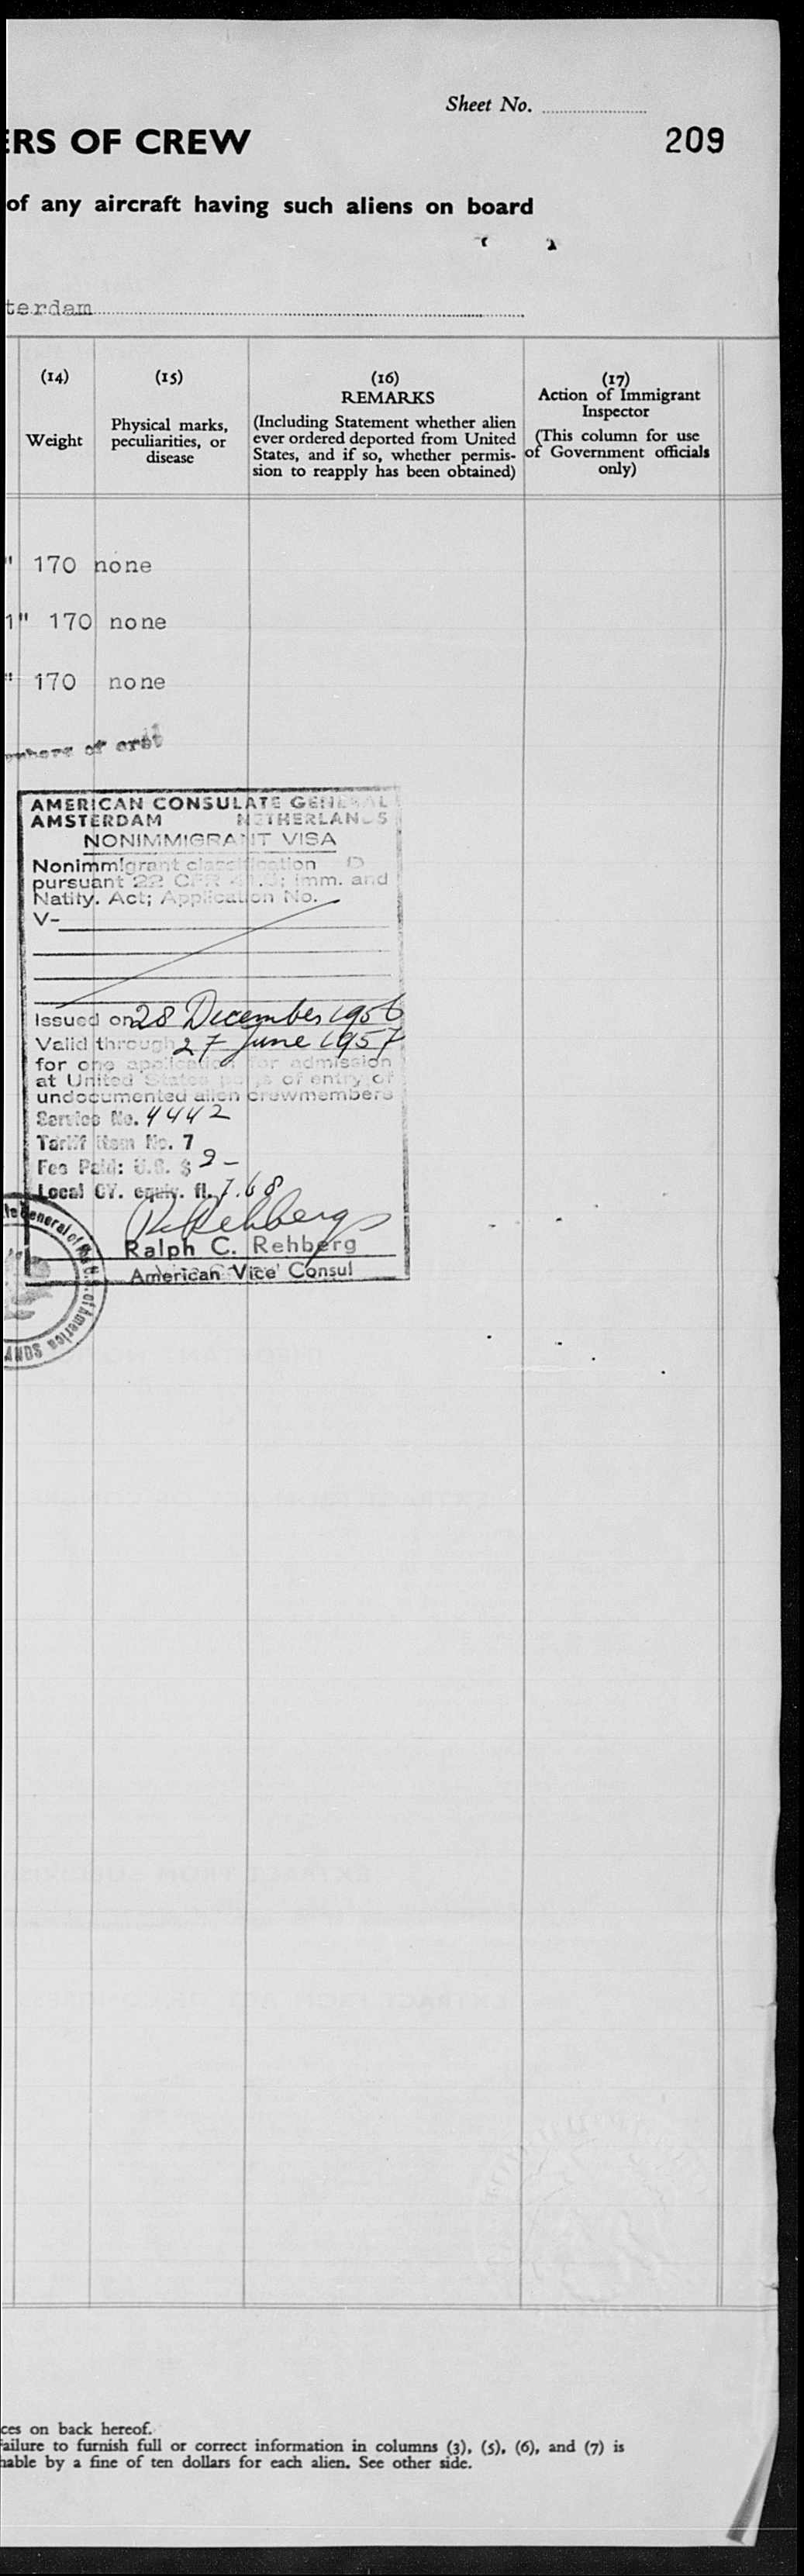 Sheet No.
ERS OF CREW 209
of any aircraft having such aliens on board
terdam
(14) (15) (16) (17)
Weight
Physical marks,
peculiarities, or
disease
REMARKS
(Including Statement whether alien
ever ordered deported from United
States, and if so, whether permis-
sion to reapply has been obtained)
Action of Immigrant
Inspector
(This column for use
of Government officials
only)
" 170 none
1" 170 none
" 170 none
of
AMERICAN CONSULATE GENERAL
AMSTERDAM NETHERLANDS
NONIMMIGRANT VISA
Nonimmigrant classification D
pursuant 22 CFR 41.5; Imm. and
Natity. Act; Application No.
V-
Issued on 28 December 1956
Valid through 27 June 1957
for one application for admission
at United States ports of entry of
undocumented alien crewmembers
Service No. 4442
Tariff Item No. 7
Fee Paid: U.S. $ 2-
Local CY. equiv. fl. 7.68
R. Rehberg
Ralph C. Rehberg
American Vice Consul
General of the U.S. of America
ces on back hereof.
ailure to furnish full or correct information in columns (3), (5), (6), and (7) is
hable by a fine of ten dollars for each alien. See other side.